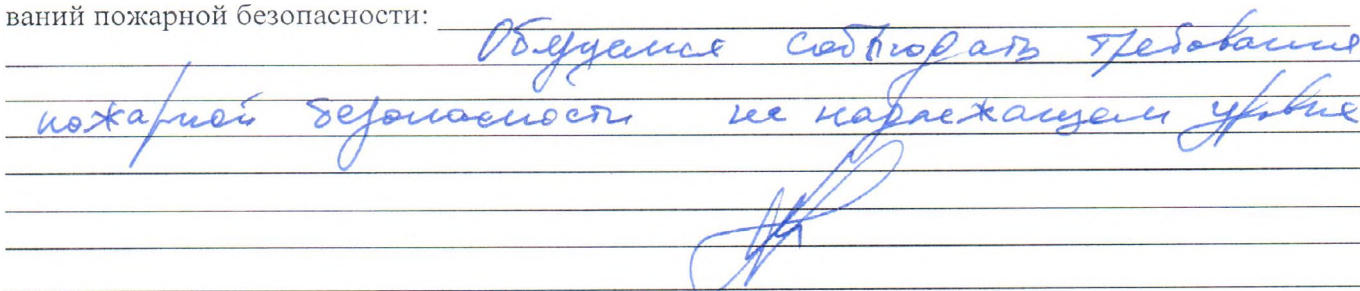 ваний пожарной безопасности:
Обязуемся соблюдать требования
пожарной безопасности на надлежащем уровне